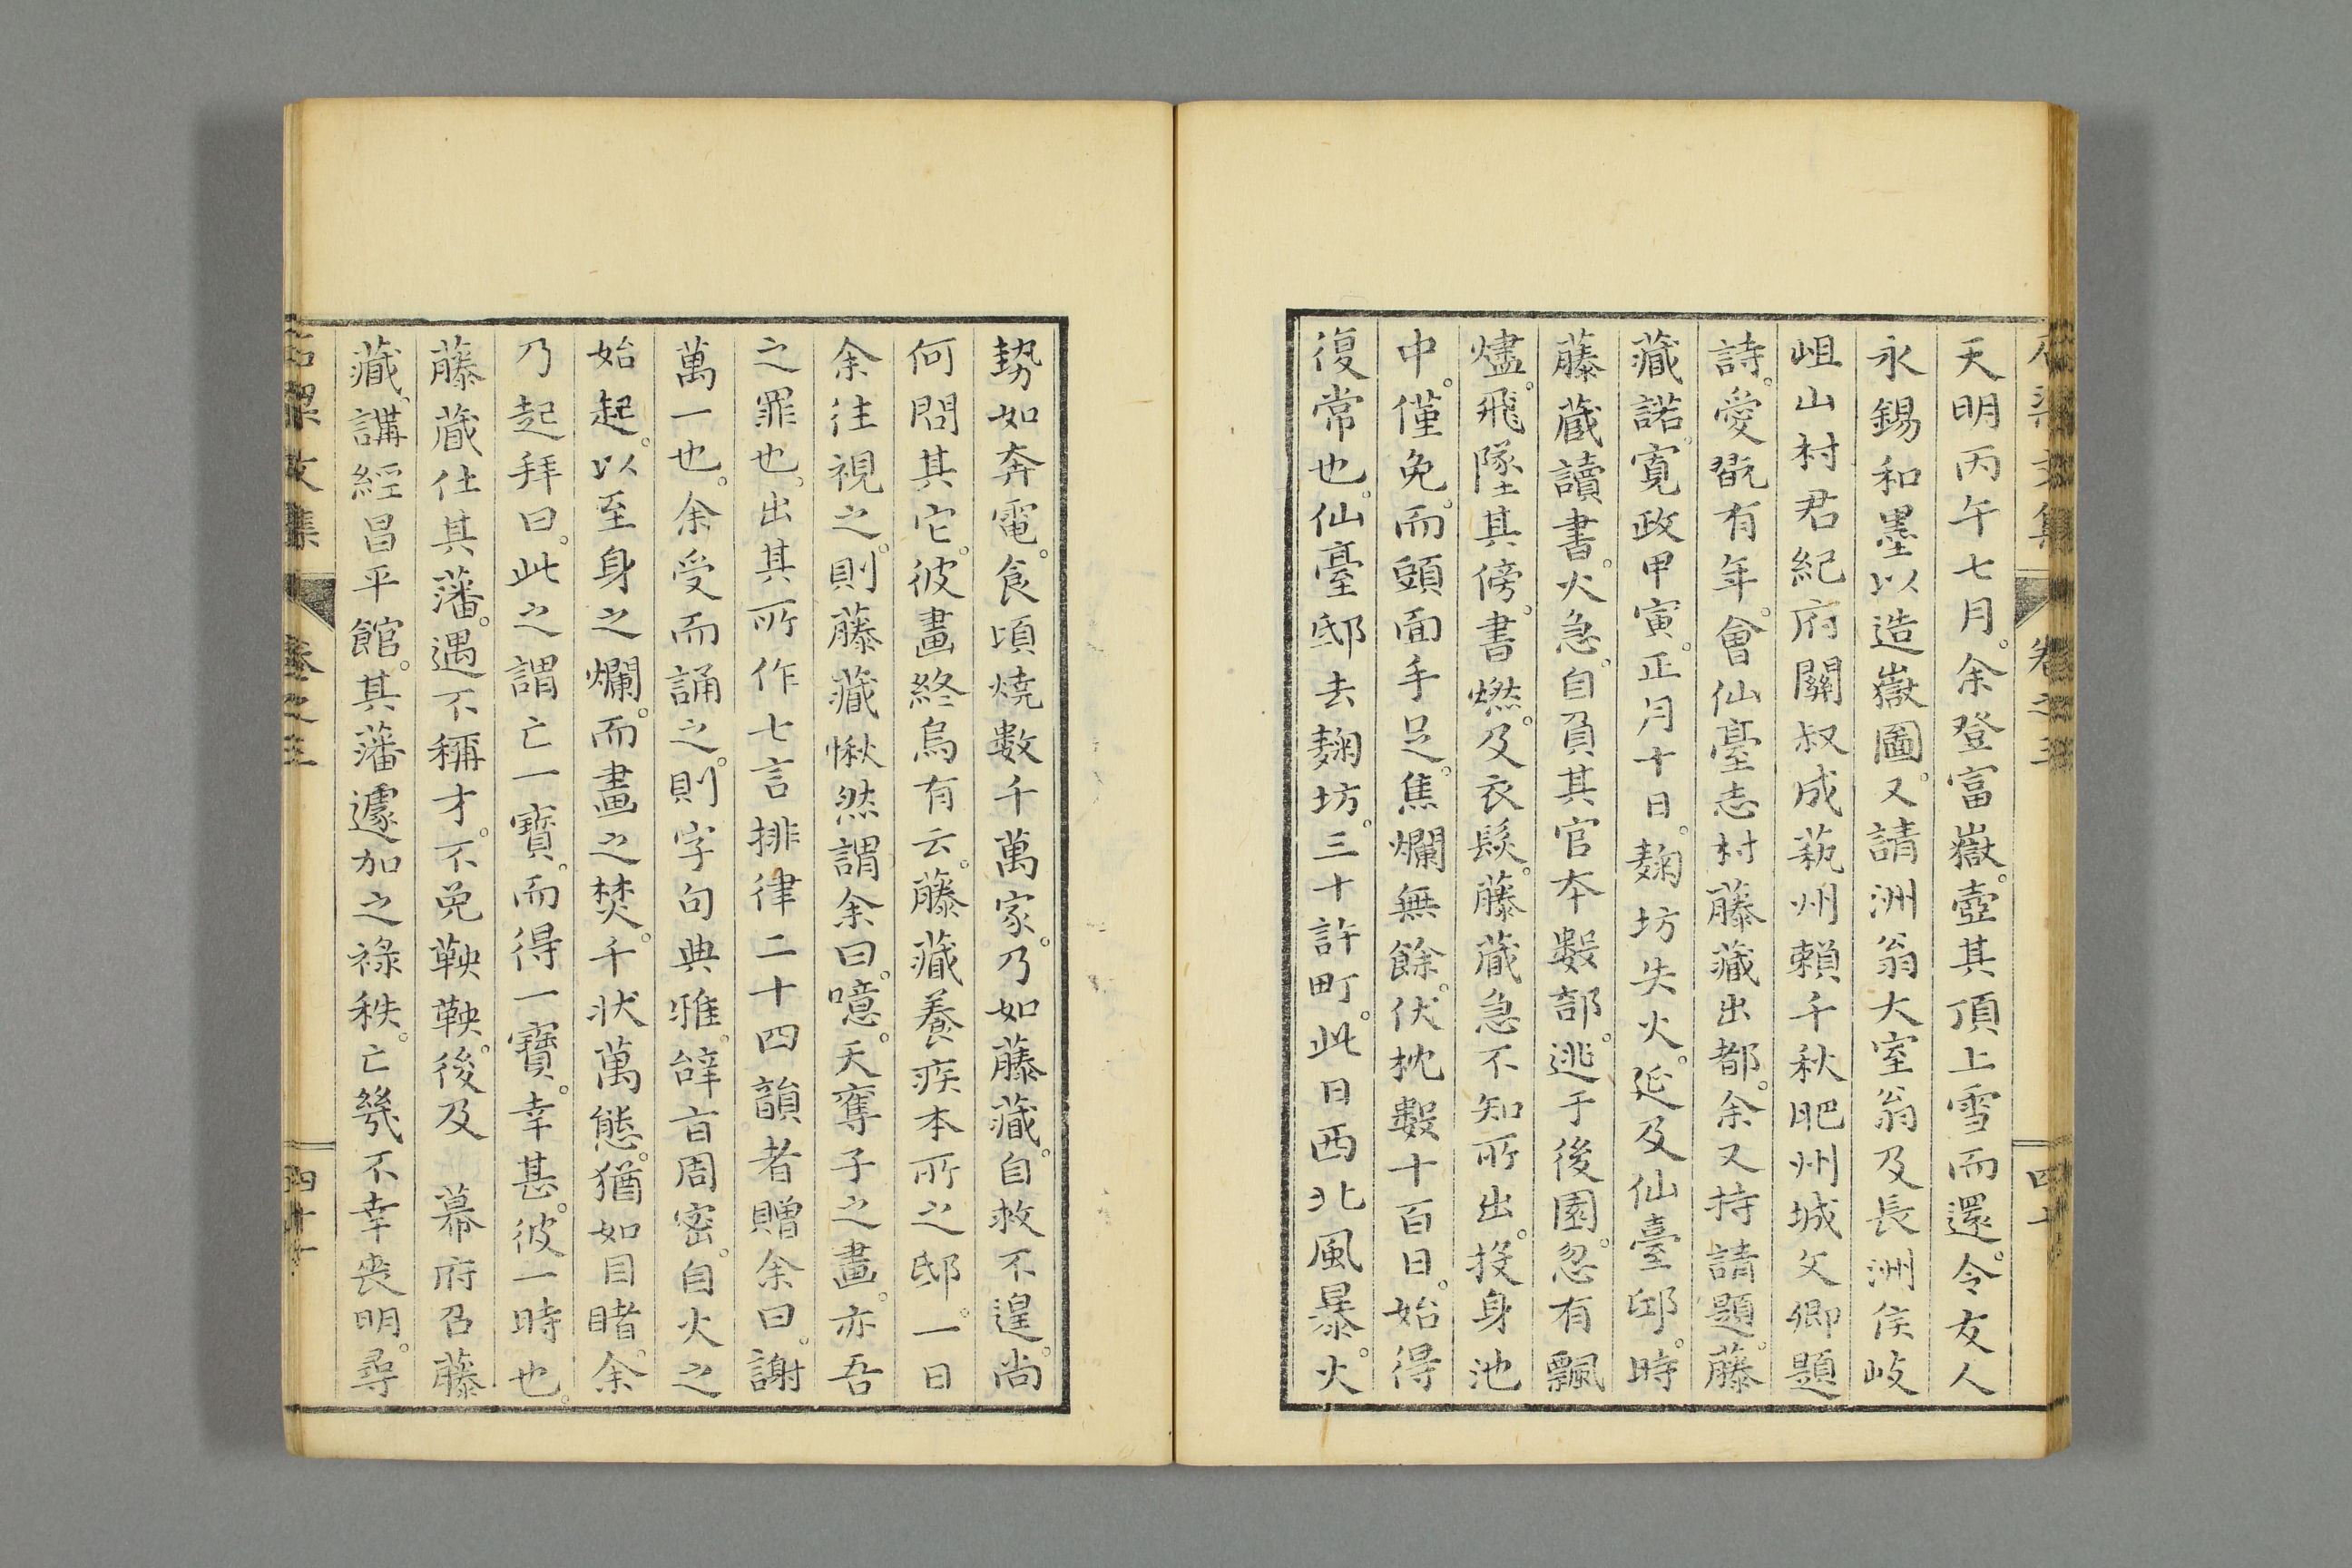 天明丙午七月。余登富嶽。壺其頂上雪而還。令友人
永錫和墨以造嶽圖。又請洲翁大室翁及長洲侯岐
岨山村君紀府關叔成藝州賴千秋肥州城文卿題
詩。愛翫有年。會仙臺志村藤藏出都。余又持請題。藤
藏諾。寬政甲寅。正月十日。麹坊失火。延及仙臺邸。時
藤藏讀書。火急。自負其官本數部。逃于後園。忽有飄
燼。飛墜其傍。書燃。及衣髮。藤藏急不知所出。投身池
中。僅免。而頭面手足。焦爛無餘。伏枕數十百日。始得
復常也。仙臺邸去麹坊。三十許町。此日西北風暴。火
勢如奔電。食頃燒數千萬家。乃如藤藏。自救不遑。尚
何問其它。彼畫終烏有云。藤藏養疾本所之邸。一日
余往視之。則藤藏愀然謂余曰。噫。天奪子之畫。亦吾
之罪也。出其所作七言排律二十四韻者贈余曰。謝
萬一也。余受而誦之。則字句典雅。辭旨周密。自火之
始起。以至身之爛。而畫之焚。千狀萬態。猶如目睹。余
乃起拜曰。此之謂亡一寶。而得一寶。幸甚。彼一時也。
藤藏仕其藩。遇不稱才。不免鞅鞅。後及　幕府召藤
藏、講經昌平館。其藩遽加之祿秩。亡幾不幸喪明。尋
文集
卷之三